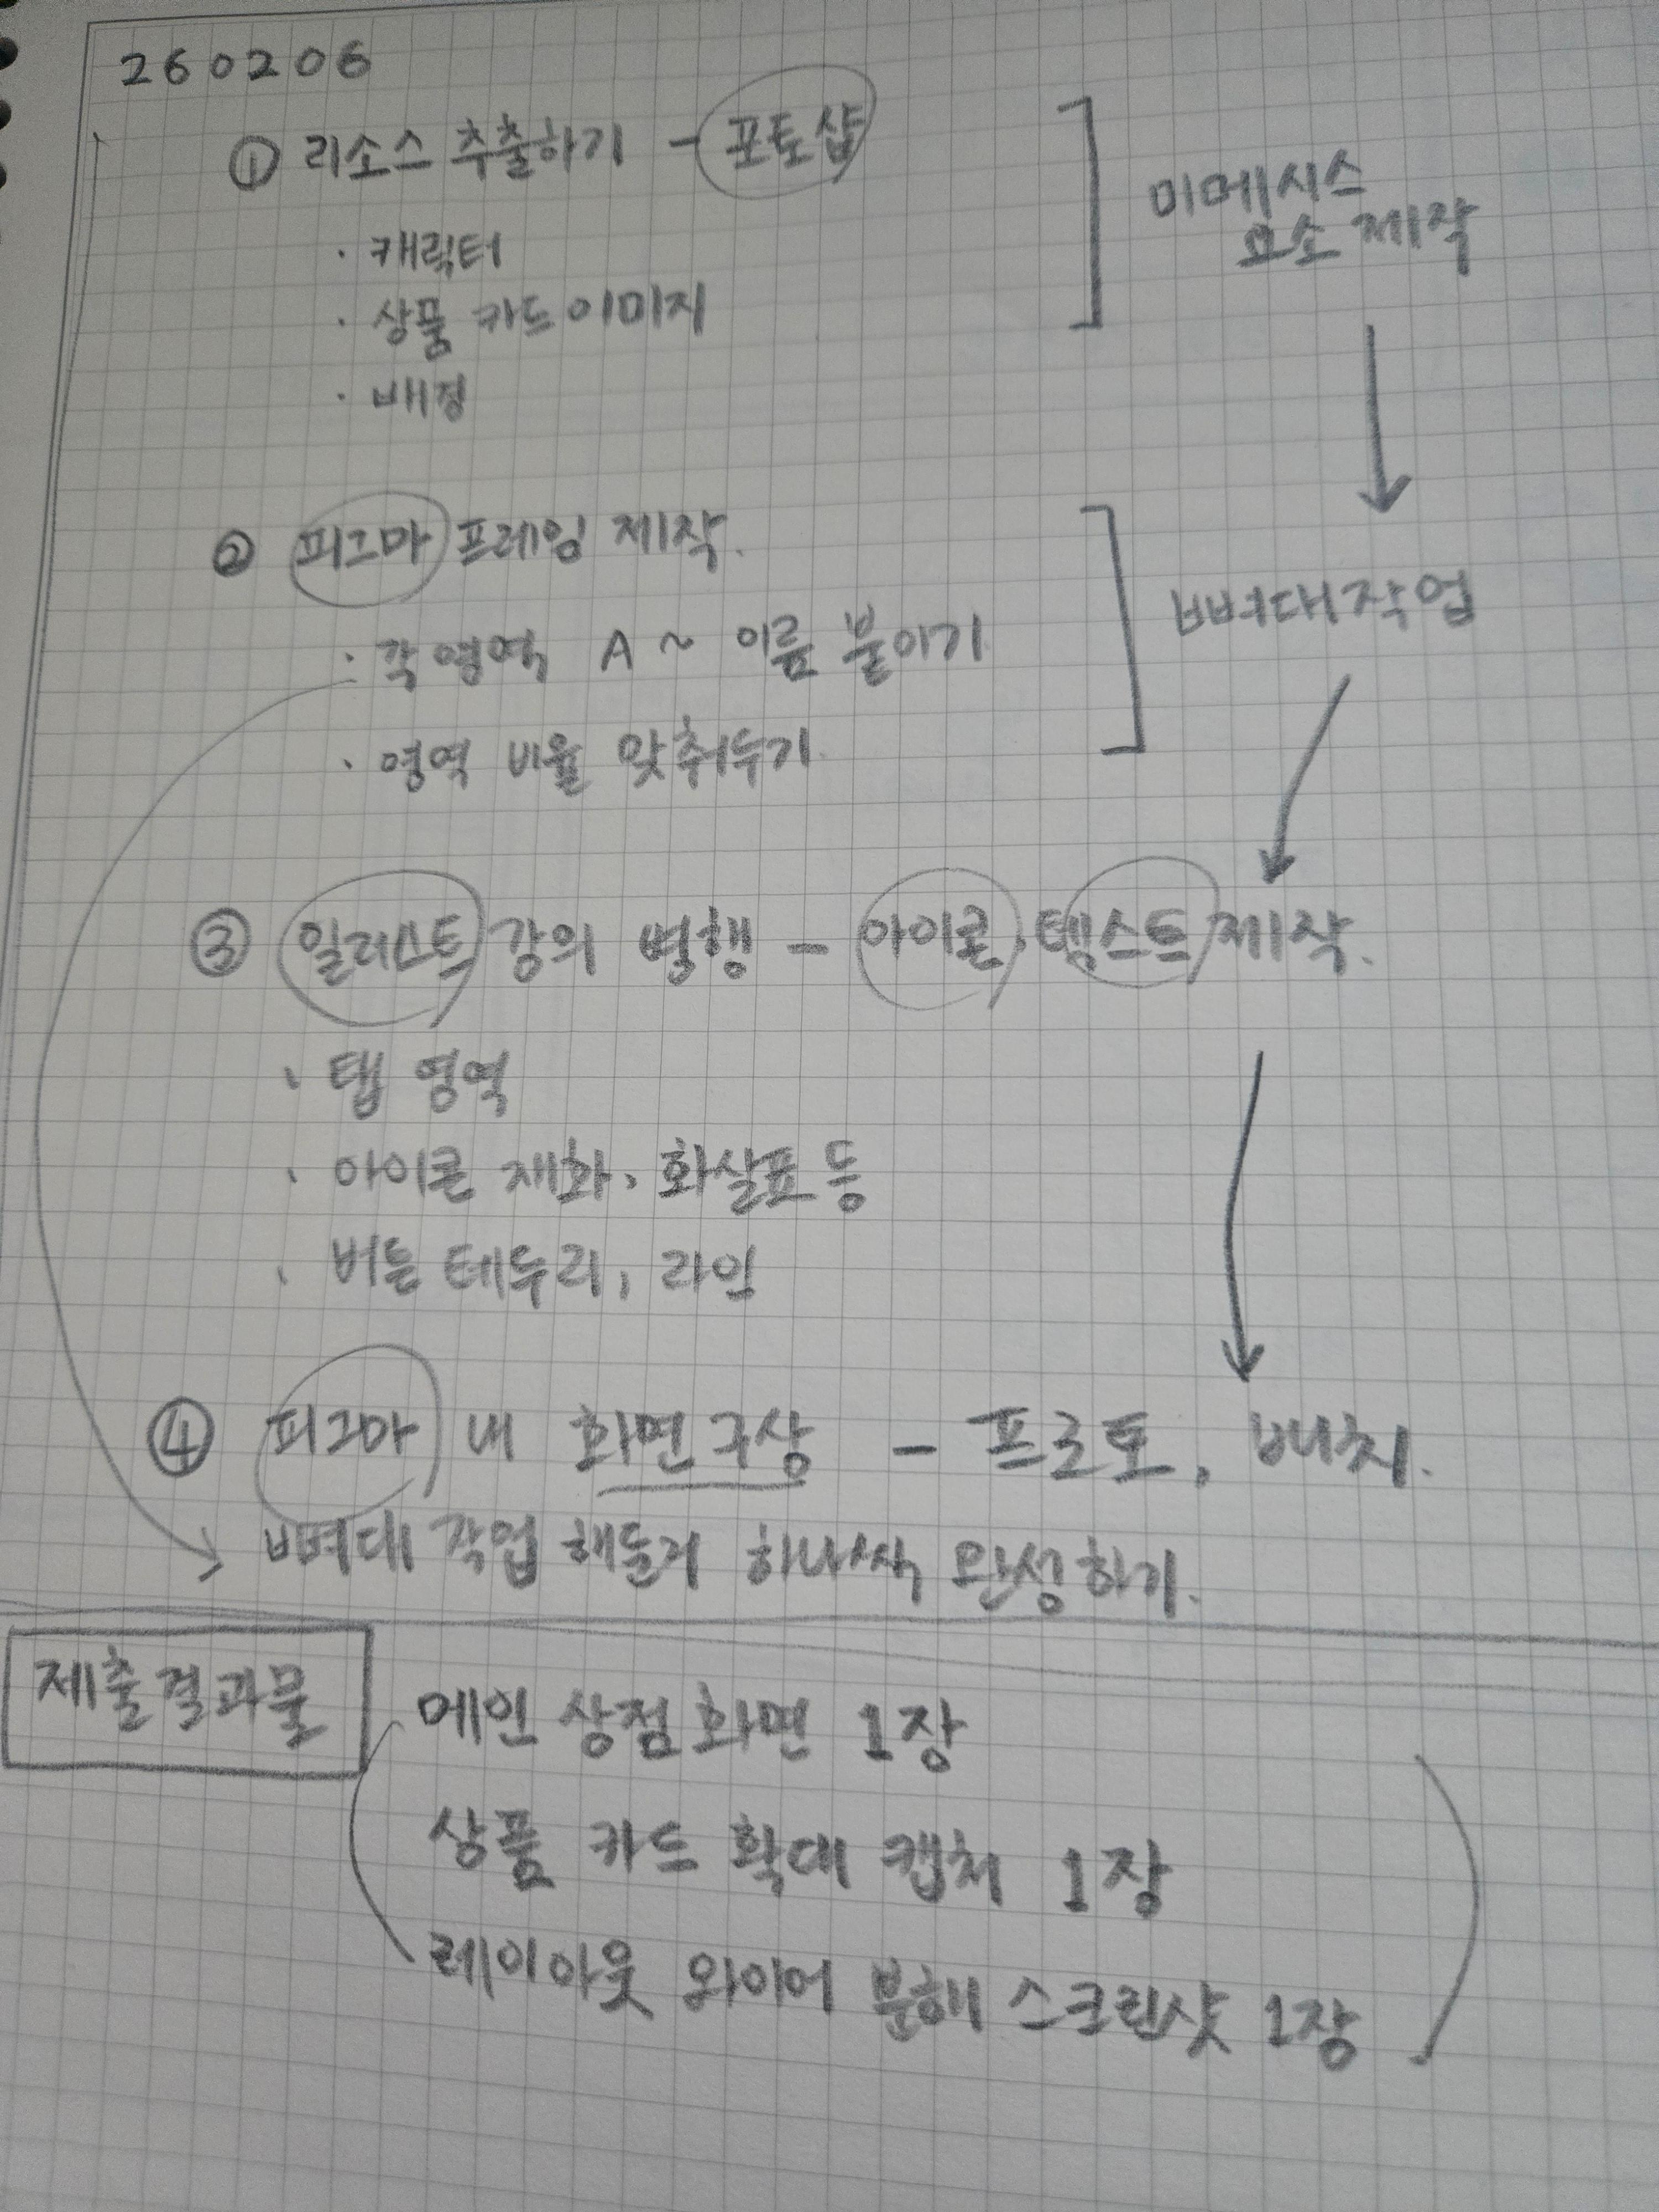 260206
① 리소스 추출하기 - 포토샵
· 캐릭터
· 상품 카드 이미지
· 배경
미메시스
요소 제작
② 피그마 프레임 제작.
· 각 영역 A ~ 이름 붙이기
· 영역 비율 맞춰두기
뼈대작업
③ 일러스트 강의 병행 - 아이콘, 텍스트 제작.
· 탭 영역
· 아이콘 재화, 화살표 등
· 버튼 테두리, 라인
④ 피그마 내 화면구상 - 프로토, 배치.
뼈대 작업 해둔거 하나씩 완성하기.
제출결과물
메인 상점 화면 1장
상품 카드 확대 캡처 1장
레이아웃 와이어 분해 스크린샷 1장